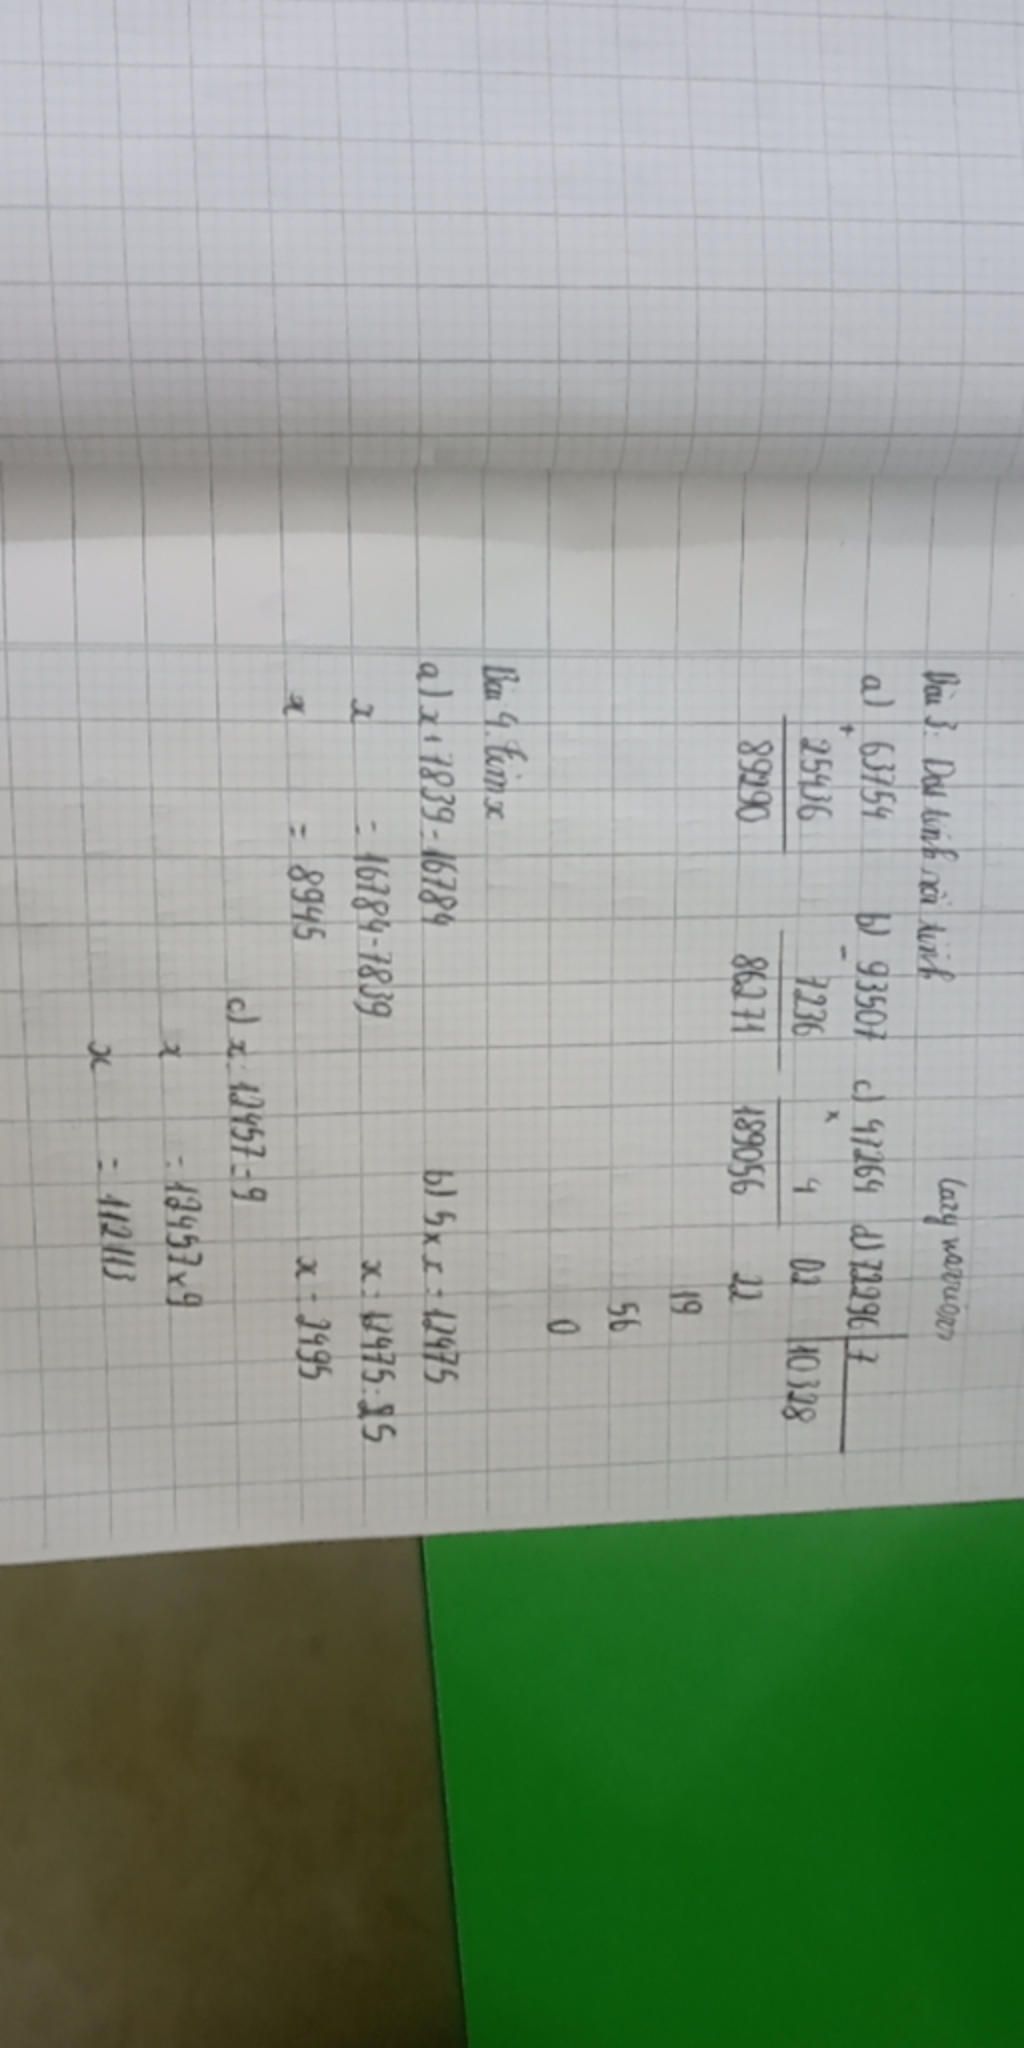 Bài 3: Đặt tính rồi tính lazy warrior
a) 63754 b) 93507 c) 47264 d) 72296 7
+ - x
25436 7236 4 02 10328
89290 86271 189056 22
19
56
0
Bài 4. Tìm x
a) x + 7839 = 16784 b) 5 x x = 12475
x = 16784 - 7839 x = 12475 : 5
x = 8945 x = 2495
c) x : 12457 = 9
x = 12457 x 9
x = 112113